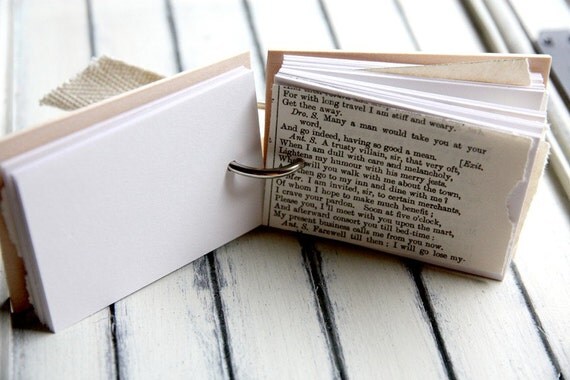 For with long travel I am stiff and weary.
Get thee away.
Dro. S. Many a man would take you at your
word,
And go indeed, having so good a mean. [Exit.
Ant. S. A trusty villain, sir, that very oft,
When I am dull with care and melancholy,
Lightens my humour with his merry jests.
will you walk with me about the town,
then go to my inn and dine with me?
I am invited, sir, to certain merchants,
Of whom I hope to make much benefit;
I crave your pardon. Soon at five o'clock,
Please you, I'll meet with you upon the mart,
And afterward consort you till bed-time:
My present business calls me from you now.
Ant. S. Farewell till then; I will go lose my-